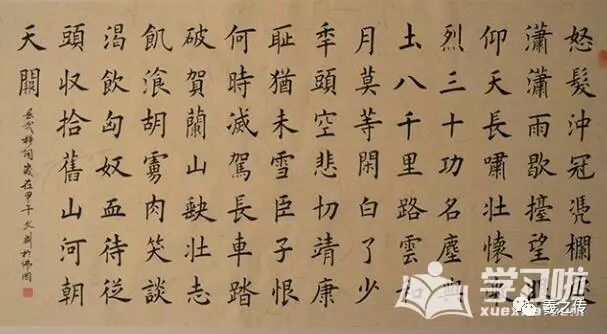 怒髮沖冠凴欄處
瀟瀟雨歇擡望眼
仰天長嘯壯懷激
烈三十功名塵與
土八千里路雲和
月莫等閑白了少
秊頭空悲切靖康
耻猶未雪臣子恨
何時滅駕長車踏
破賀蘭山缺壯志
飢飡胡虜肉笑談
渴飲匈奴血待從
頭收拾舊山河朝
天闕
岳武穆詞歲在甲午文剛於佛
学习啦
羲之传